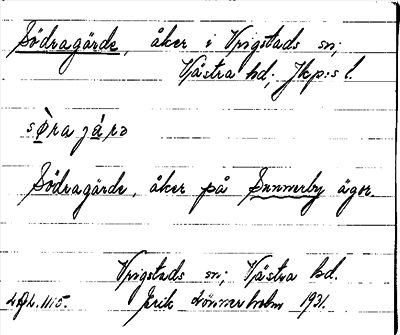 Södragärde, åker i Vrigstads sn;
Västra hd; Jkp:s l.
sø̀ra járə
Södragärde, åker på Sunnerby ägor.
Vrigstads sn; Västra hd.
Erik Lönnerholm 1931.